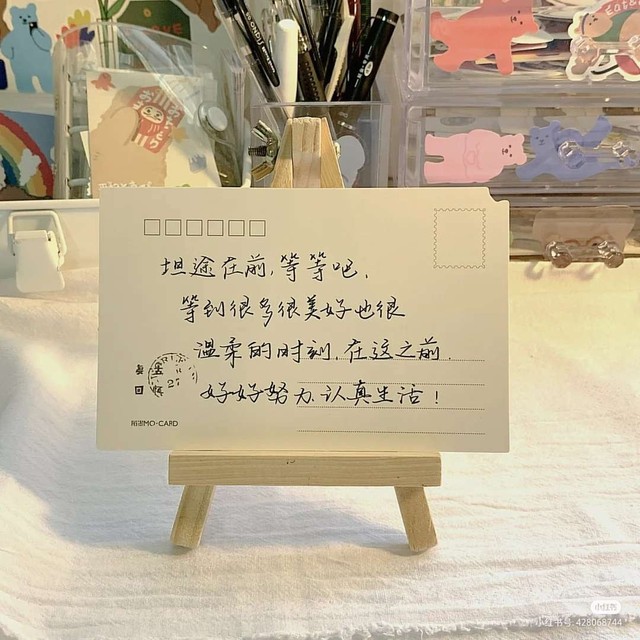 坦途在前,等等吧,
等到很多很美好也很
温柔的时刻,在这之前,
好好努力,认真生活!
陌墨MO·CARD
小红书
小红书号: 428068744